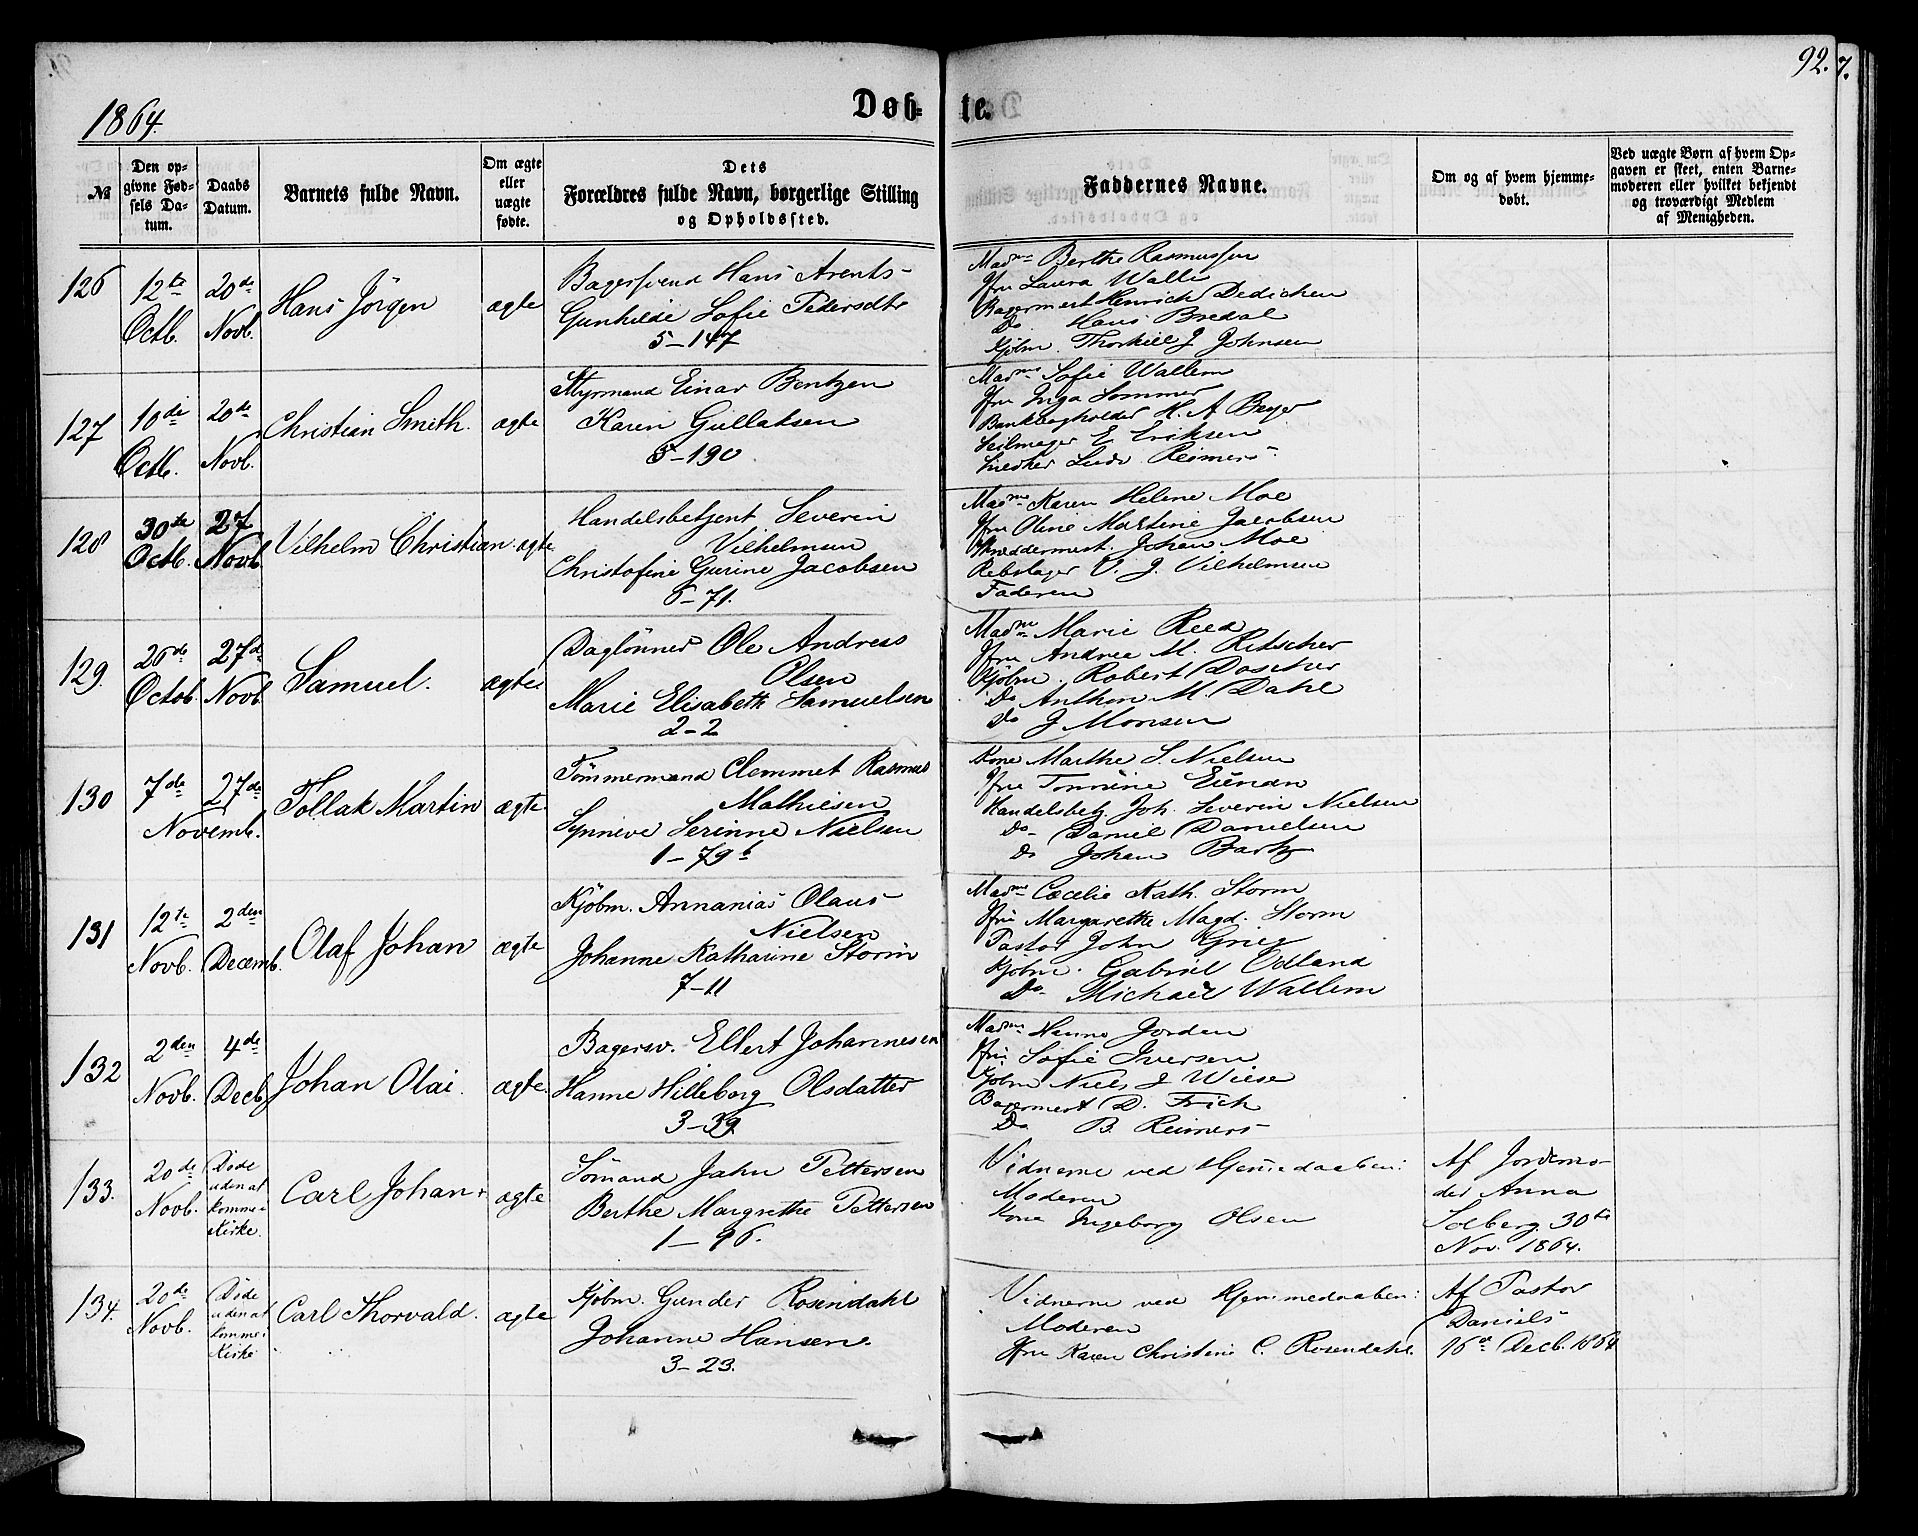 1864.
Døb-
te.
92.
7.
№
Den op-
givne Fød-
sels Da-
tum.
Daabs
Datum.
Barnets fulde Navn.
Om ægte
eller
uægte
fødte.
Dets
Forældres fulde Navn, borgerlige Stilling
og Opholdssted.
Faddernes Navne.
Om og af hvem hjemme-
døbt.
Ved uægte Børn af hvem Op-
gaven er skeet, enten Barne-
moderen eller hvilket bekjendt
og troværdigt Medlem
af Menigheden.
126
12te
Octb.
20de
Novb.
Hans Jörgen
ægte
Bagersvend Hans Arents-
Gunhilde Sofie Pedersdtr
5-147
Madme Berthe Rasmussen
Jfru Laura Walli
Bagermest Henrich Dedichen
Do Hans Bredal
Kjøbm. Thorkill J Johnsen
127
10de
Octb.
20de
Novb.
Christian Smith.
ægte
Styrmand Einar Bentzen
Karen Gullaksen
5-190
Madme Sofie Wallem
Jfru Inga Sommer
H. A Beyer
Seilmager E Eriksen
Snedker Ludv. Reimers
128
30te
Octb.
27
Novb.
Vilhelm Christian
ægte
Handelsbetjent Severin
Vilhelmsen
Christofine Gurine Jacobsen
6-71.
Madme Karen Helene Moe
Jfru Oline Martine Jacobsen
Skreddermest. Johan Moe
Rebslager V. J. Vilhelmsen
Faderen
129.
26de
Octob.
27de
Novb.
Samuel.
ægte
Daglønner Ole Andreas
Olsen
Marie Elisabeth Samuelsen
2-2
Madme Marie Reed
Jfru Andrea M. Ritscher
Kjøbm. Robert Doscher
Do Anthon M. Dahl
Do J Monsen
130
7de
27de
Novemb.
Tollak Martin
ægte
Tømmermand Clemmet Rasmus
Mathiesen
Synneve Serinne Nielsen
1-79b
Kone Marthe S. Nielsen
Jfru
Handelsbetj. Joh. Severin Nielsen
Do Daniel Danielsen
Do Johan
131
12te
Novb.
2den
Decemb.
Olaf Johan
ægte
Kjøbm. Annanias Olaus
Nielsen
Johanne Katharine Storm
7-11
Madme Cæcilie Kath. Storm
Jfru Margarethe Magd. Storm
Pastor John Grieg
Kjøbm. Gabriel Edland
Do Michael Wallem
132
2den
Novb.
4de
Decb.
Johan Olai.
ægte
Bagersv. Ellert Johannesen
Hanne Hilleborg Olsdatter
3-39
Madme Hanne Jorden
Jfru Sofie Iversen
Kjøbm Niels J Wiese
Bagermest D. Frich
Do B. Reimers
133.
20de
Novb.
Døde
uden at
komme i
Kirke.
Carl Johan
ægte
Sømand Jahn Pettersen
Berthe Margrethe Pettersen
1-96.
Vidnerne ved Hjemmedaaben:
Moderen
Kone Ingeborg Olsen
Af Jordemo-
der Anna
Solberg. 30te
Nov. 1864.
134.
20de
Novb.
Døde
uden at
komme i
Kirke
Carl Thorvald.
ægte
Kjøbm. Gunder Rosendahl
Johanne Hansen.
3-23.
Vidnerne ved Hjemmedaaben:
Moderen
Jfru Karen Christine C. Rosendahl.
Af Pastor
Daniels
16de Decb. 1864